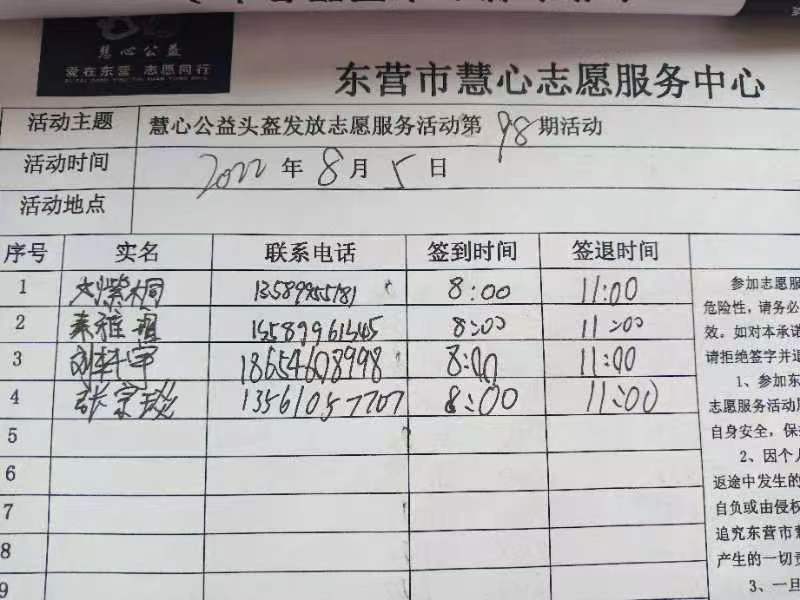 慧心公益
爱在东营 志愿同行
东营市慧心志愿服务中心
活动主题 慧心公益头盔发放志愿服务活动第98期活动
活动时间 2022年8月5日
活动地点
序号 实名 联系电话 签到时间 签退时间
1 紫桐 13589955781 8:00 11:00
2 秦雅 15589961545 8:00 11:00
3 刘轩宇 18654608998 8:00 11:00
4 张宗琰 13561057707 8:00 11:00
5
6
7
8
9
参加志愿服
危险性，请务必
效。如对本承诺
请拒绝签字并退
1、参加东
志愿服务活动
自身安全，保
2、因个人
返途中发生的
自负或由侵权
追究东营市慧
产生的一切责
3、一旦